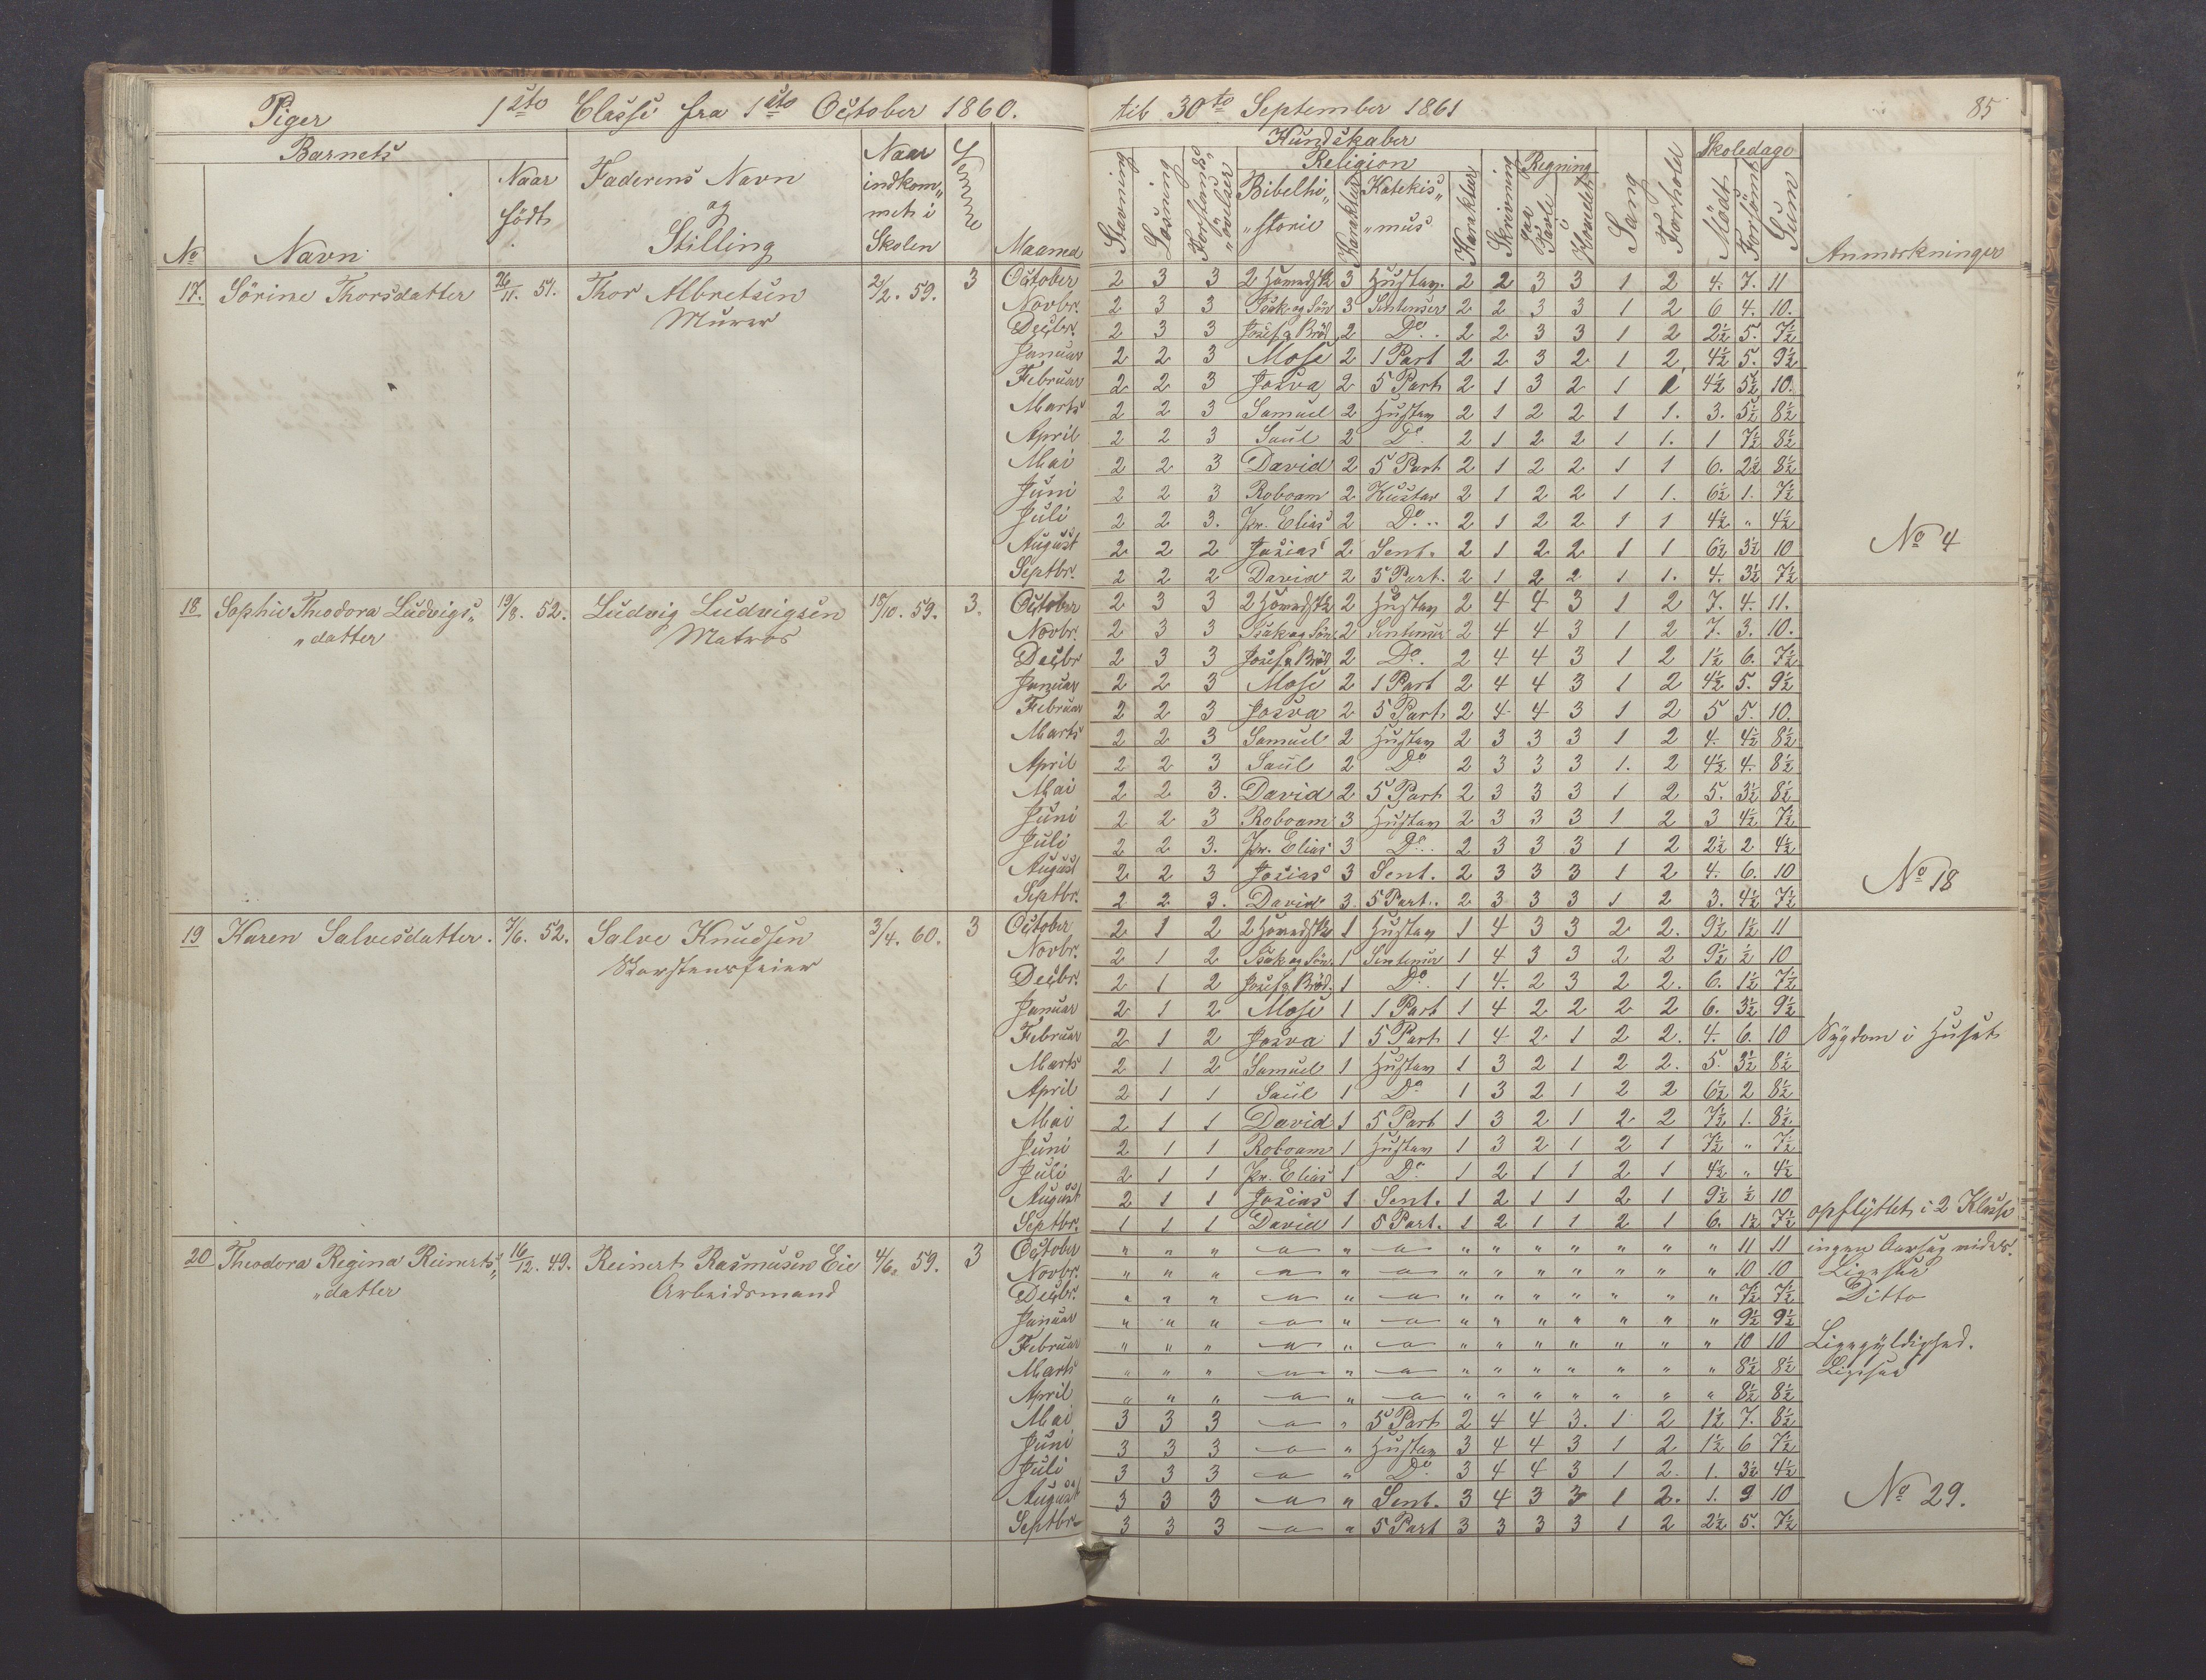 Piger 1ste Classe fra 1ste October 1860. til 30te September 1861 85
Barnets Kundskaber Skoledage
Religion Regning
No Navn Naar födt Faderens Navn og Stilling Naar indkom„met i Skolen Evne Maaned Stavning Læsning Forstands„övelser Bibelhi„storie Karakter Katekis„mus Karakter Skrivning paa Tavle i Hovedet Sang Forholder Mödt Forsömt Sum Anmærkninger
17. Sörine Thorsdatter 26/11. 51. Thor Albretsen 2/2. 59. 3 October 2 3 3 2 Hovedstk 3 Hustav. 2 2 3 3 1 2 4. 7. 11
Murer Novbr. 2 3 3 Isak og Sön 3 Sentenser 2 2 3 3 1 2 6 4. 10.
Decbr. 2 3 3 Josef g Bröd 2 Do. 2 2 3 3 1 2 2½ 5. 7½
Januar 2 2 3 Mose 2 1 Part 2 2 3 2 1 2 4½ 5. 9½
Februar 2 2 3 Josva 2 5 Part 2 1 3 2 1 2 4½ 5½ 10.
Marts 2 2 3 Samuel 2 Hustav 2 1 2 2 1 1. 3. 5½ 8½
April 2 2 3 Saul 2 Do. 2 1 2 2 1 1. 1 7½ 8½
Mai 2 2 3 David 2 5 Part 2 1 2 2 1 1 6. 2½ 8½
Juni 2 2 3 Roboam 2 Hustav 2 1 2 2 1 1. 6½ 1. 7½
Juli 2 2 3. Pr. Elias 2 Do.. 2 1 2 2 1 1 4½ „ 4½
August 2 2 2 Josias 2 Sent. 2 1 2 2 1 1 6½ 3½ 10 No 4
Septbr. 2 2 2 David 2 5 Part. 2 1 2 2 1 1. 4. 3½ 7½
18 Sophie Theodora Ludvigs„ 19/8. 52. Ludvig Ludvigsen 18/10. 59. 3. October 2 3 3 2 Hovedstk 2 Hustav 2 4 4 3 1 2 7. 4. 11.
„datter Matros Novbr. 2 3 3 Isak og Sön 2 Sentenser 2 4 4 3 1 2 7. 3. 10.
Decbr 2 3 3 Josef g Bröd 2 Do. 2 4 4 3 1 2 1½ 6. 7½
Januar 2 2 3 Mose 2 1 Part 2 4 4 3 1 2 4½ 5. 9½
Februar 2 2 3 Josva 2 5 Part 2 4 4 3 1 2 5 5. 10.
Marts 2 2 3 Samuel 2 Hustav 2 3 3 3 1 2 4. 4½ 8½
April 2 2 3 Saul 2 Do 2 3 3 3 1. 2 4½ 4. 8½
Mai 2 2 3. David 2 5 Part 2 3 3 3 1 2 5. 3½ 8½
Juni 2 2 3 Roboam 3 Hustav 2 3 3 3 1 2 3 4½ 7½
Juli 2 2 3. Pr. Elias 3 Do.. 2 3 3 3 1 2 2½ 2 4½
August 2 2 3 Josias 3 Sent. 2 3 3 3 1 2 4. 6. 10 No 18
Septbr. 2 2 3. David 3. 5 Part. 2 3 3 3 1 2 3. 4½ 7½
19 Karen Salvesdatter. 7/6. 52. Salve Knudsen 3/4. 60. 3 October 2 1 2 2 Hovedstk 1 Hustav 1 4 3 3 2 2. 9½ 1½ 11
Skorstensfeier Novbr. 2 1 2 Isak og Sön. 1 Sentenser 1 4 3 3 2 2 9½ ½ 10
Decbr. 2 1 2 Josef g Bröd. 1 Do. 1 4. 2 3 2 2. 6. 1½ 7½
Januar 2 1 2 Mose 1 1 Part 1 4 2 2 2 2 6. 3½ 9½
Februar 2 1 2 Josva 1 5 Part 1 4 2 1 2 2. 4. 6. 10 Sygdom i Huset
Marts 2 1 2 Samuel 1 Hustav 1 3 2 1 2 2. 5. 3½ 8½
April 2 1 1 Saul 1 Do 1 3 2 1 2 2 6½ 2 8½
Mai 2 1 1 David 1 5 Part 1 3 2 1 2 2 7½ 1. 8½
Juni 2 1 1 Roboam 1 Hustav 1 3 2 1 2 1 7½ „ 7½
Juli 2 1 1 Pr. Elias 1 Do. 1 2 1 1 2 1 4½ „ 4½
August 2 1 1 Josias 1 Sent. 1 2 1 1 2 1 9½ ½ 10
Septbr. 1 1 1 David 1 5 Part. 1 2 1 1 2 1 6. 1½ 7½ opflyttet i 2 Klasse
20 Theodora Regina Reinerts„ 16/12. 49. Reinert Rasmusen Eie 4/6. 59. 3 October „ „ „ „ „ „ „ „ „ „ „ „ „ 11 11 ingen Aarsag
„datter Arbeidsmand Novbr. „ „ „ „ „ „ „ „ „ „ „ „ „ 10 10 Ligesaa
Decbr. „ „ „ „ „ „ „ „ „ „ „ „ „ 7½ 7½ Ditto
Januar „ „ „ „ „ „ „ „ „ „ „ „ „ 9½ 9½
Februar „ „ „ „ „ „ „ „ „ „ „ „ „ 10 10 Ligegyldighed.
Marts „ „ „ „ „ „ „ „ „ „ „ „ „ 8½ 8½ Ligesaa
April „ „ „ „ „ „ „ „ „ „ „ „ „ 8½ 8½
Mai 3 3 3 „ „ 5 Part 2 4 4 3. 1 2 1½ 7. 8½
Juni 3 3 3 „ „ Hustav 3 4 4 3 1 2 1½ 6 7½
Juli 3 3 3 „ „ Do. 3 4 4 3 1 2. 1. 3½ 4½
August 3 3 3 „ „ Sent. 3 4 3 3 1 2. 1. 9 10 No 29.
Septbr 3 3 3 „ „ 5 Part 3 3 3 3 1 2 2½ 5. 7½